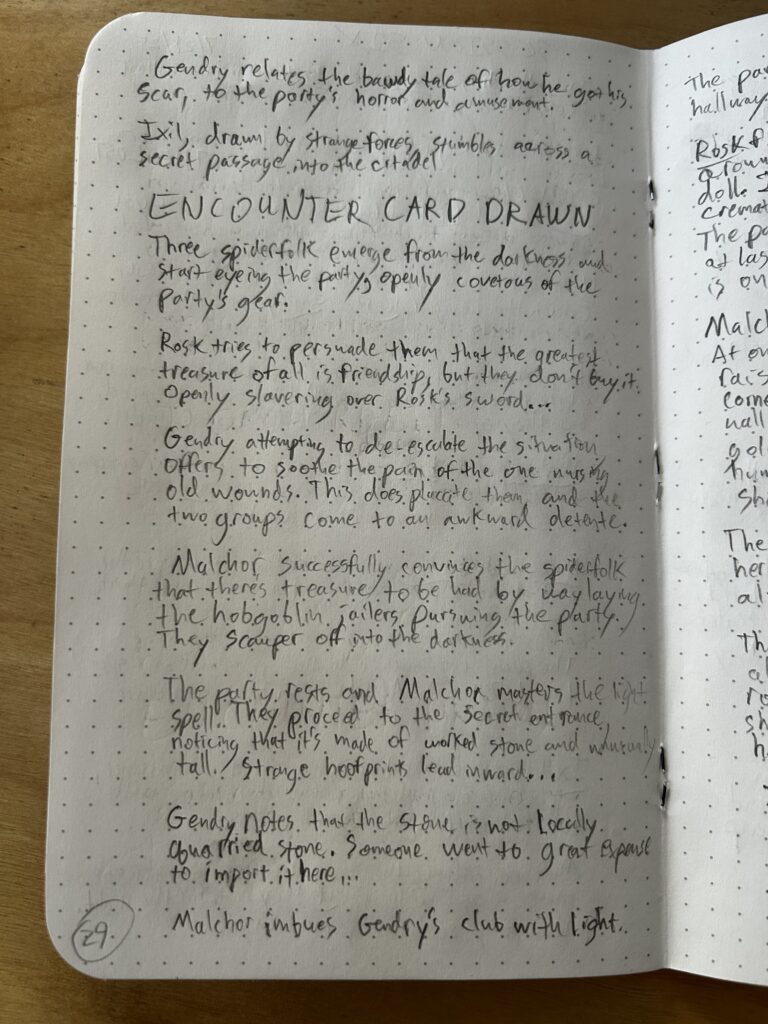 Gendry relates the bawdy tale of how he got his
scar, to the party's horror and amusement.
Ixil, drawn by strange forces, stumbles across a
secret passage into the citadel
ENCOUNTER CARD DRAWN
Three spiderfolk emerge from the darkness and
start eyeing the party, openly covetous of the
party's gear.
Rosk tries to persuade them that the greatest
treasure of all is friendship, but they don't buy it.
Openly slavering over Rosk's sword...
Gendry attempting to de-escalate the situation
offers to soothe the pain of the one nursing
old wounds. This does placate them and the
two groups come to an awkward detente.
Malchor successfully convinces the spiderfolk
that there's treasure to be had by waylaying
the hobgoblin jailers pursuing the party.
They scamper off into the darkness.
The party rests and Malchor masters the light
spell. They proceed to the secret entrance,
noticing that it's made of worked stone and unusually
tall. Strange hoofprints lead inward...
Gendry notes that the stone is not locally
quarried stone. Someone went to great expense
to import it here...
Malchor imbues Gendry's club with light.
29.
The
hallway
Rosk
doll.
The
at las
is on
Malch
At on
The
Th